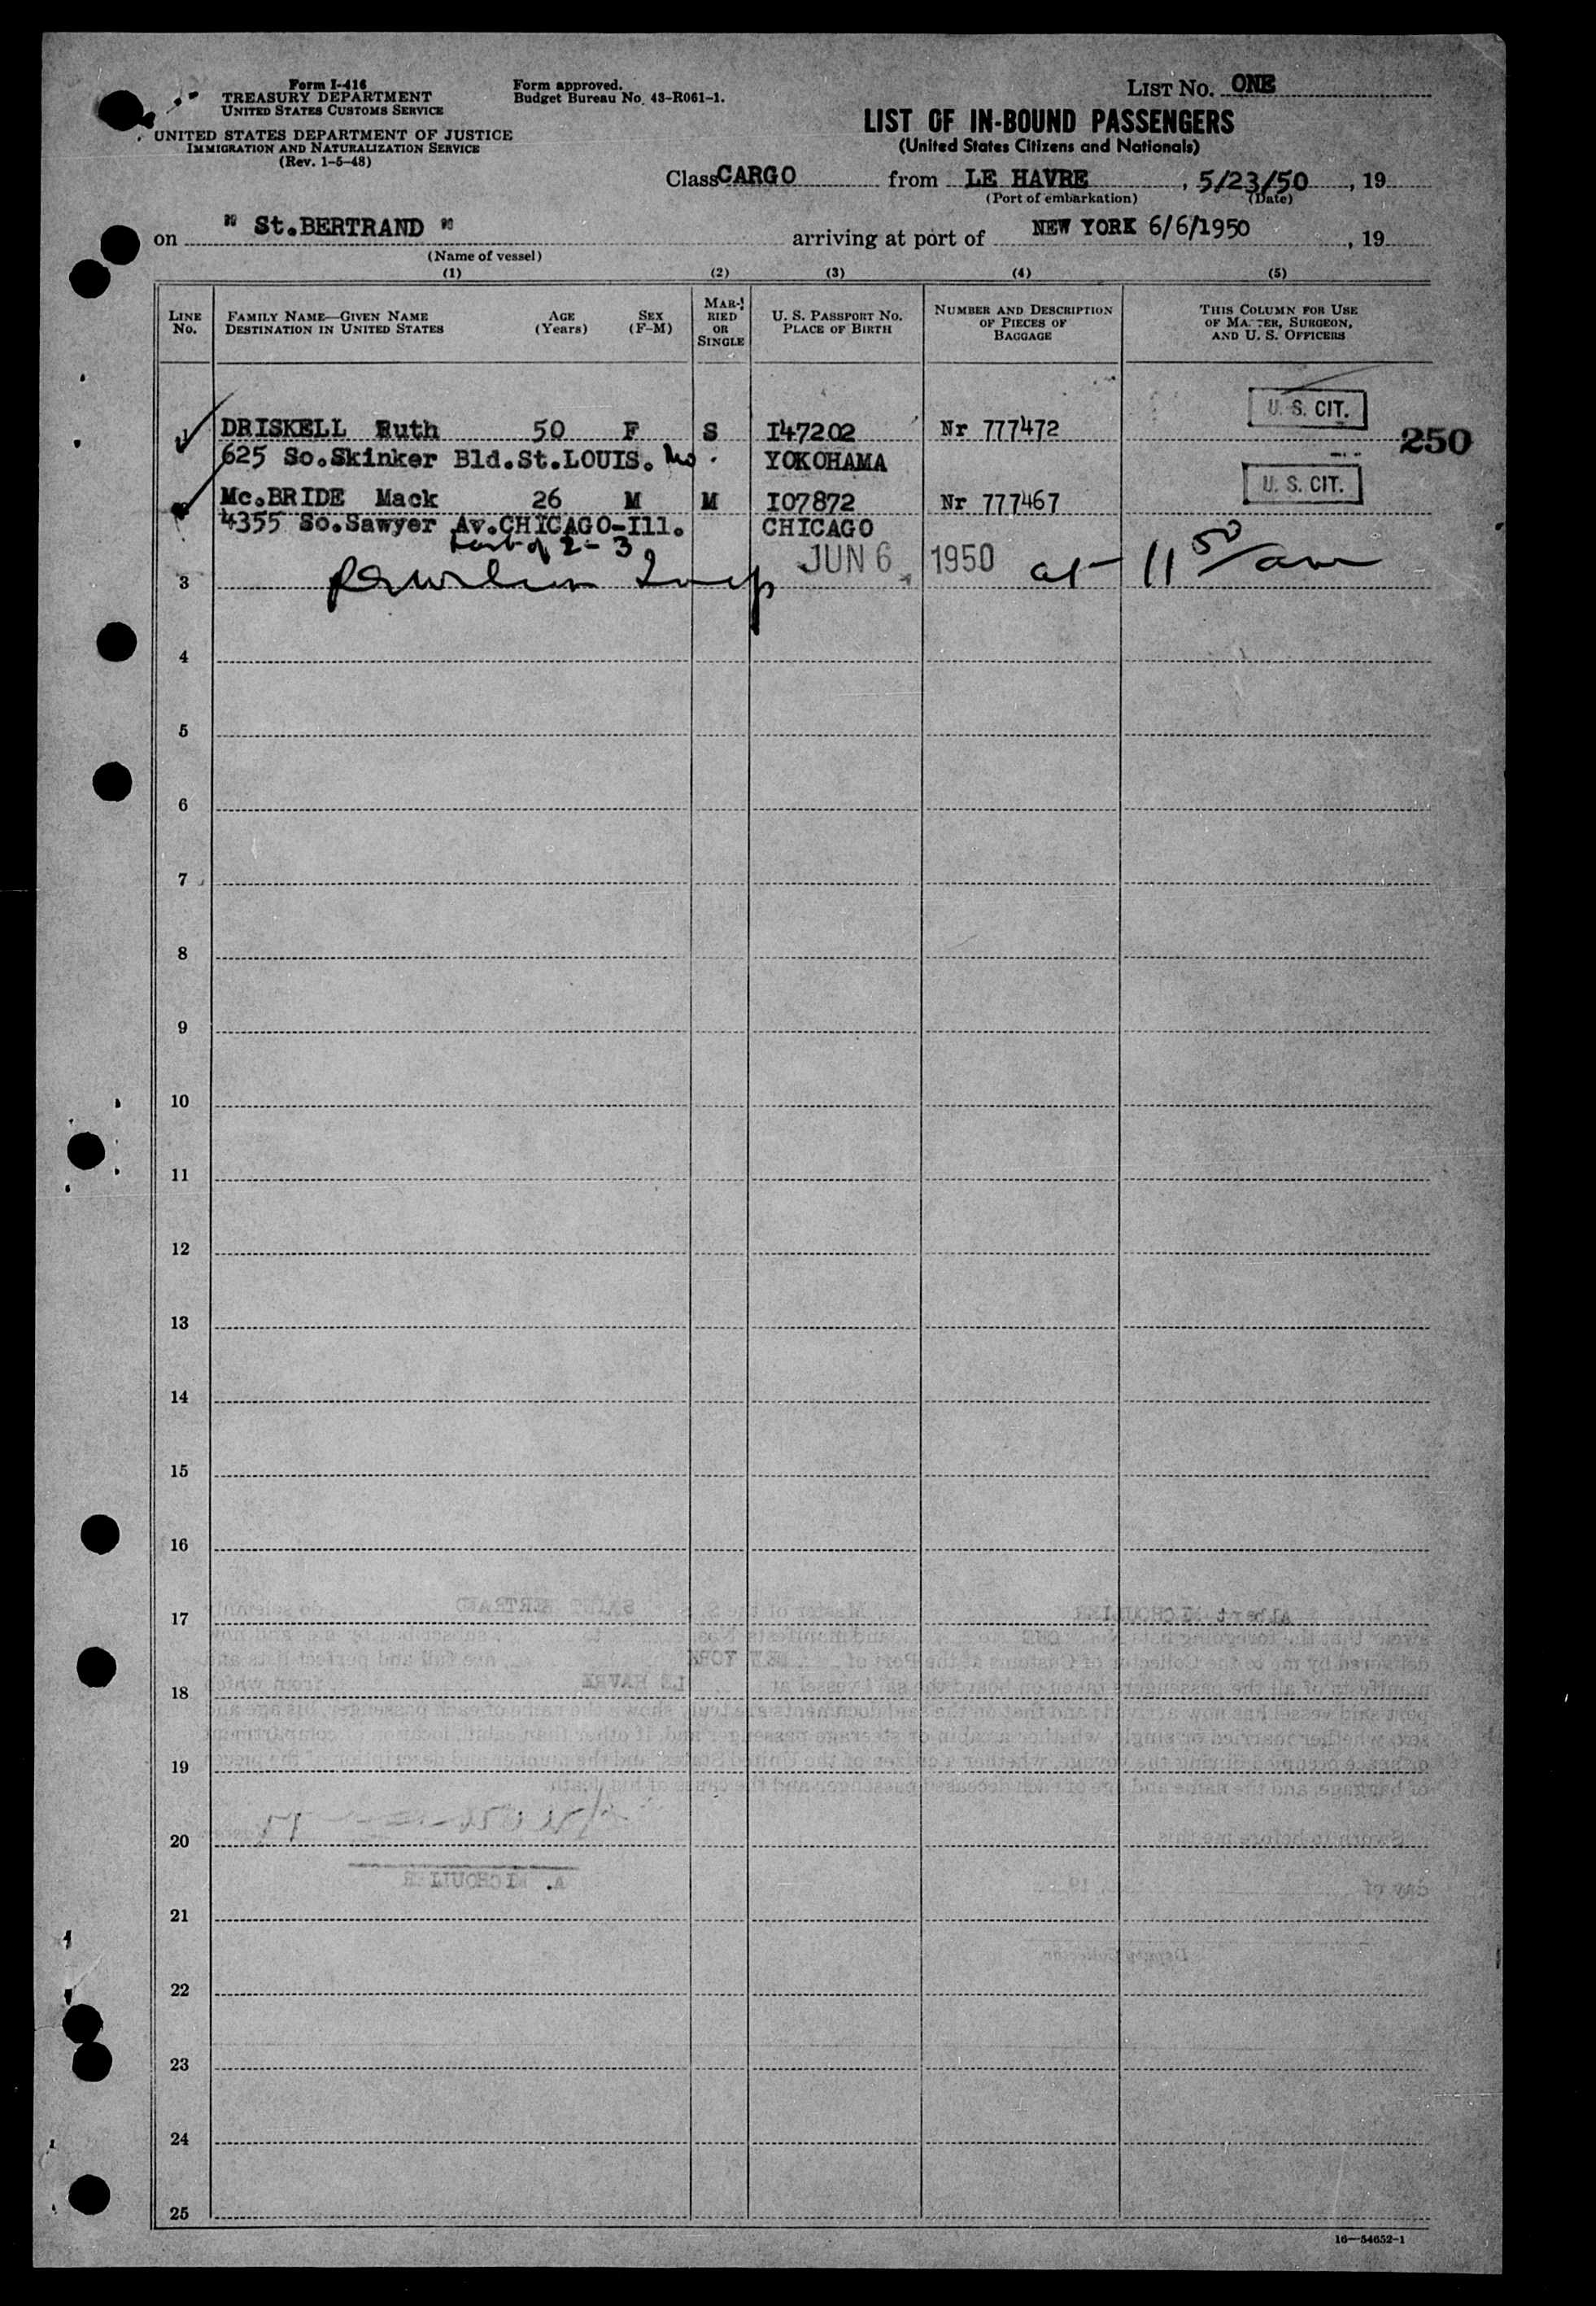 Form I-416
TREASURY DEPARTMENT
UNITED STATES CUSTOMS SERVICE
UNITED STATES DEPARTMENT OF JUSTICE
IMMIGRATION AND NATURALIZATION SERVICE
(Rev. 1-5-48)
Form approved.
Budget Bureau No. 43-R061-1.
LIST NO. ONE
LIST OF IN-BOUND PASSENGERS
(United States Citizens and Nationals)
Class CARGO from LE HAVRE, 5/23/50, 19
(Port of embarkation) (Date)
on " St.BERTRAND " arriving at port of NEW YORK 6/6/1950, 19
(Name of vessel)
(1) (2) (3) (4) (5)
LINE No. FAMILY NAME—GIVEN NAME DESTINATION IN UNITED STATES AGE (Years) SEX (F-M) MARRIED OR SINGLE U. S. PASSPORT NO. PLACE OF BIRTH NUMBER AND DESCRIPTION OF PIECES OF BAGGAGE THIS COLUMN FOR USE OF MASTER, SURGEON, AND U. S. OFFICERS
U. S. CIT.
DRISKELL Ruth 50 F S I47202 Nr 777472 250
625 So.Skinker Bld.St.LOUIS. Mo. YOKOHAMA
U. S. CIT.
Mc.BRIDE Mack 26 M M I07872 Nr 777467
4355 So.Sawyer Av.CHICAGO-Ill. CHICAGO
2-3
JUN 6 1950 at 11 50/am
3
4
5
6
7
8
9
10
11
12
13
14
15
16
17
18
19
20
21
22
23
24
25
16—54652-1